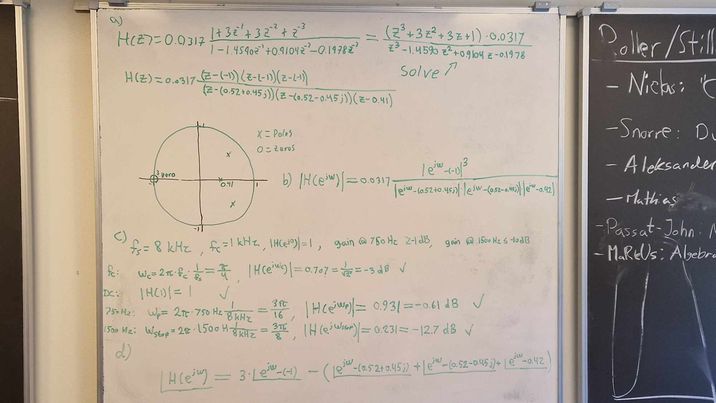 a)
H(z) = 0.0317 (1+3z⁻¹+3z⁻²+z⁻³)/(1-1.4590z⁻¹+0.9104z⁻²-0.1978z⁻³) = ((z³+3z²+3z+1)·0.0317)/(z³-1.4590z²+0.9104z-0.1978)
Solve ↗
H(z) = 0.0317 ((z-(-1))(z-(-1))(z-(-1)))/((z-(0.52+0.45j))(z-(0.52-0.45j))(z-0.41))
x = Poles
0 = Zeros
3 zero
0.41
1
b) |H(e^jω)| = 0.0317 |e^jω-(-1)|³/(|e^jω-(0.52+0.45j)|·|e^jω-(0.52-0.45j)|·|e^jω-0.42|)
c) fs = 8 kHz, fc = 1 kHz, |H(e^j0)| = 1, gain @ 750 Hz ≥ -1 dB, gain @ 1500 Hz ≤ -10 dB
fc: ωc = 2π·fc·1/fs = π/4, |H(e^jωc)| = 0.707 = 1/√2 = -3 dB ✓
DC: |H(1)| = 1 ✓
750 Hz: ωp = 2π·750 Hz 1/8 kHz = 3π/16, |H(e^jωp)| = 0.931 = -0.61 dB ✓
1500 Hz: ωstop = 2π·1500 H 1/8 kHz = 3π/8, |H(e^jωstop)| = 0.231 = -12.7 dB ✓
d)
∠H(e^jω) = 3·∠e^jω-(-1) - (∠e^jω-(0.52+0.45j) + ∠e^jω-(0.52-0.45j) + ∠e^jω-0.42)
Roller/Still
- Niclas: "C
- Snorre: Du
- Aleksander
- Mathias
- Passat-John: N
- MaRkUs: Algebra